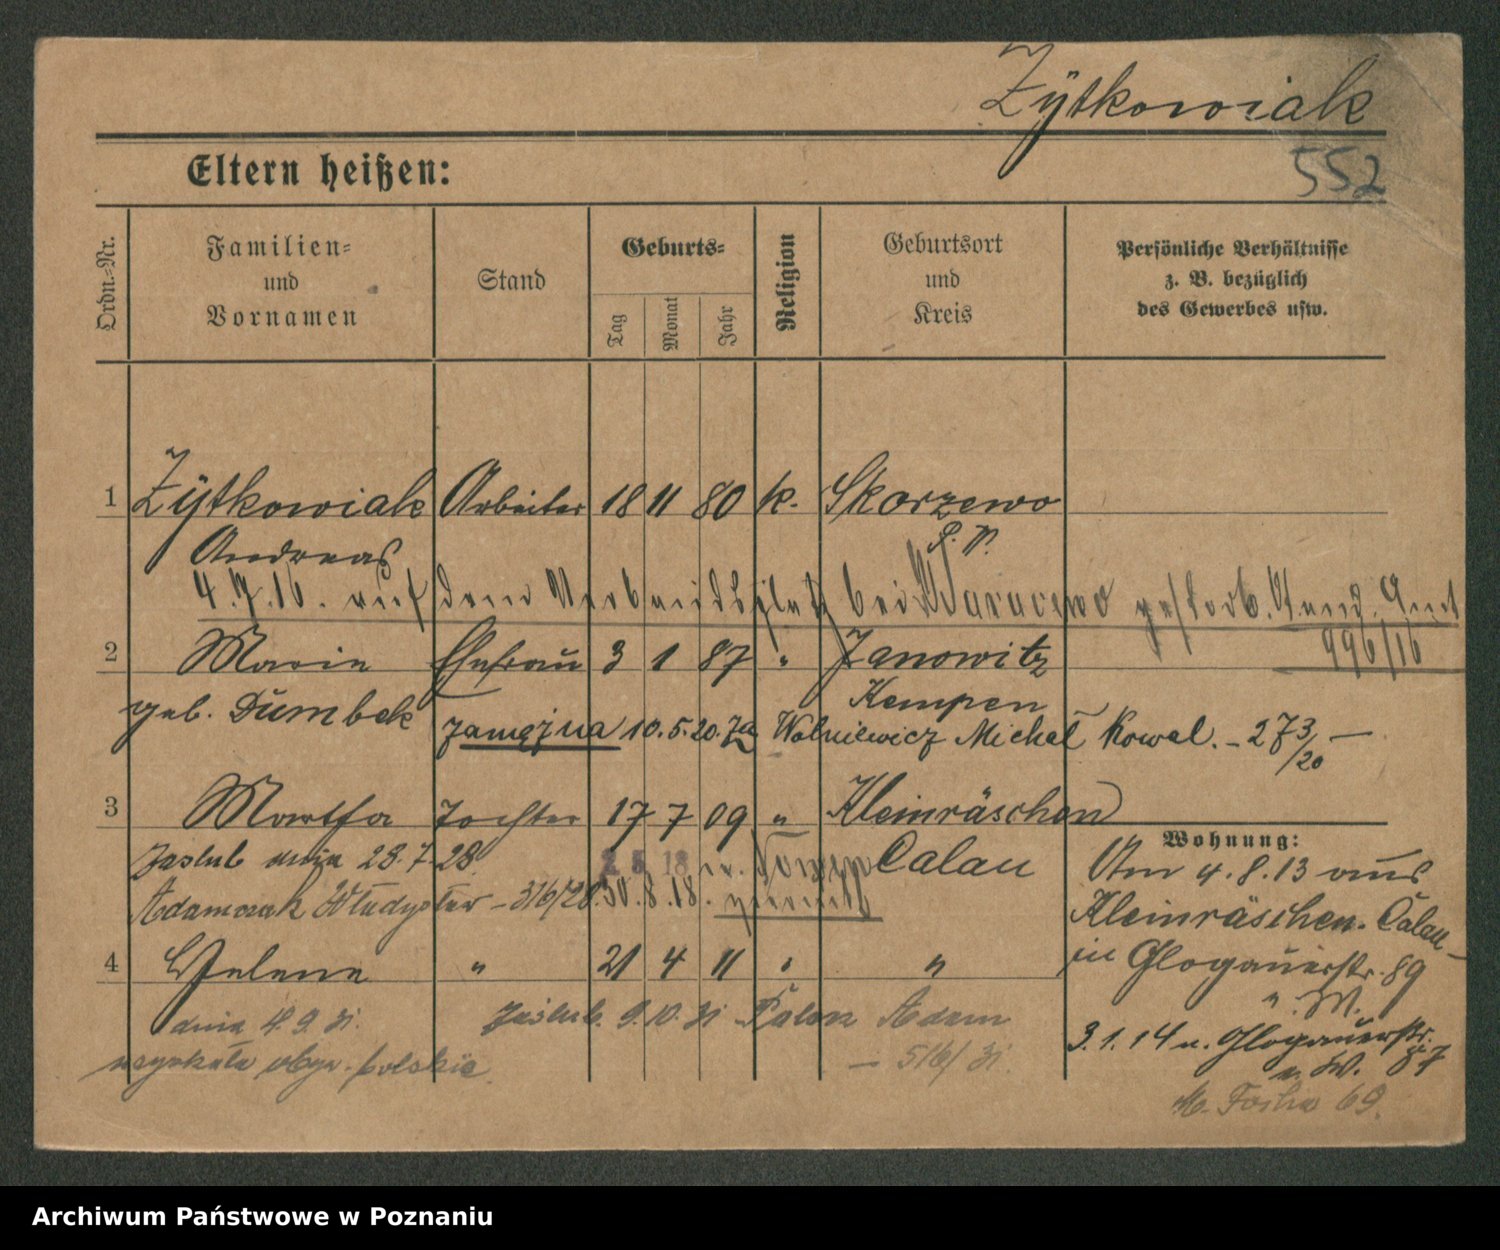 Zÿtkowiak
552
Eltern heißen:
Ordn.-Nr.
Familien-
und
Vornamen
Stand
Geburts-
Tag
Monat
Jahr
Religion
Geburtsort
und
Kreis
Persönliche Verhältnisse
z. B. bezüglich
des Gewerbes usw.
1 Zÿtkowiak Arbeiter 18 11 80 k. Skorzewo
Andreas P. W.
4.7.16. auf dem bei gestorb. Stand. Amt
996/16
2 Marie Ehefrau 3 1 87 " Janowitz
geb. Dumbek Kempen
zamężna 10.5.20. za Wolniewicz Michał Kowal. - 273/20 -
3 Martha Tochter 17 7 09 " Kleinräschen
Calau
zaślub. dnia 28.7.28.
Adamczak Władysław - 316/28.
2 5 18
30.8.18. zurück
4 Helene " 21 4 11 " "
dnia 4.9.31. zaślub. 9.10.31 Adam
uzyskała obyw. polskie - 516/31.
Wohnung:
Am 4.8.13 aus
Kleinräschen. Calau
in Glogauerstr. 89
b. W.
3.1.14 n. Glogauerstr.
87
M. Focha 69.
Archiwum Państwowe w Poznaniu